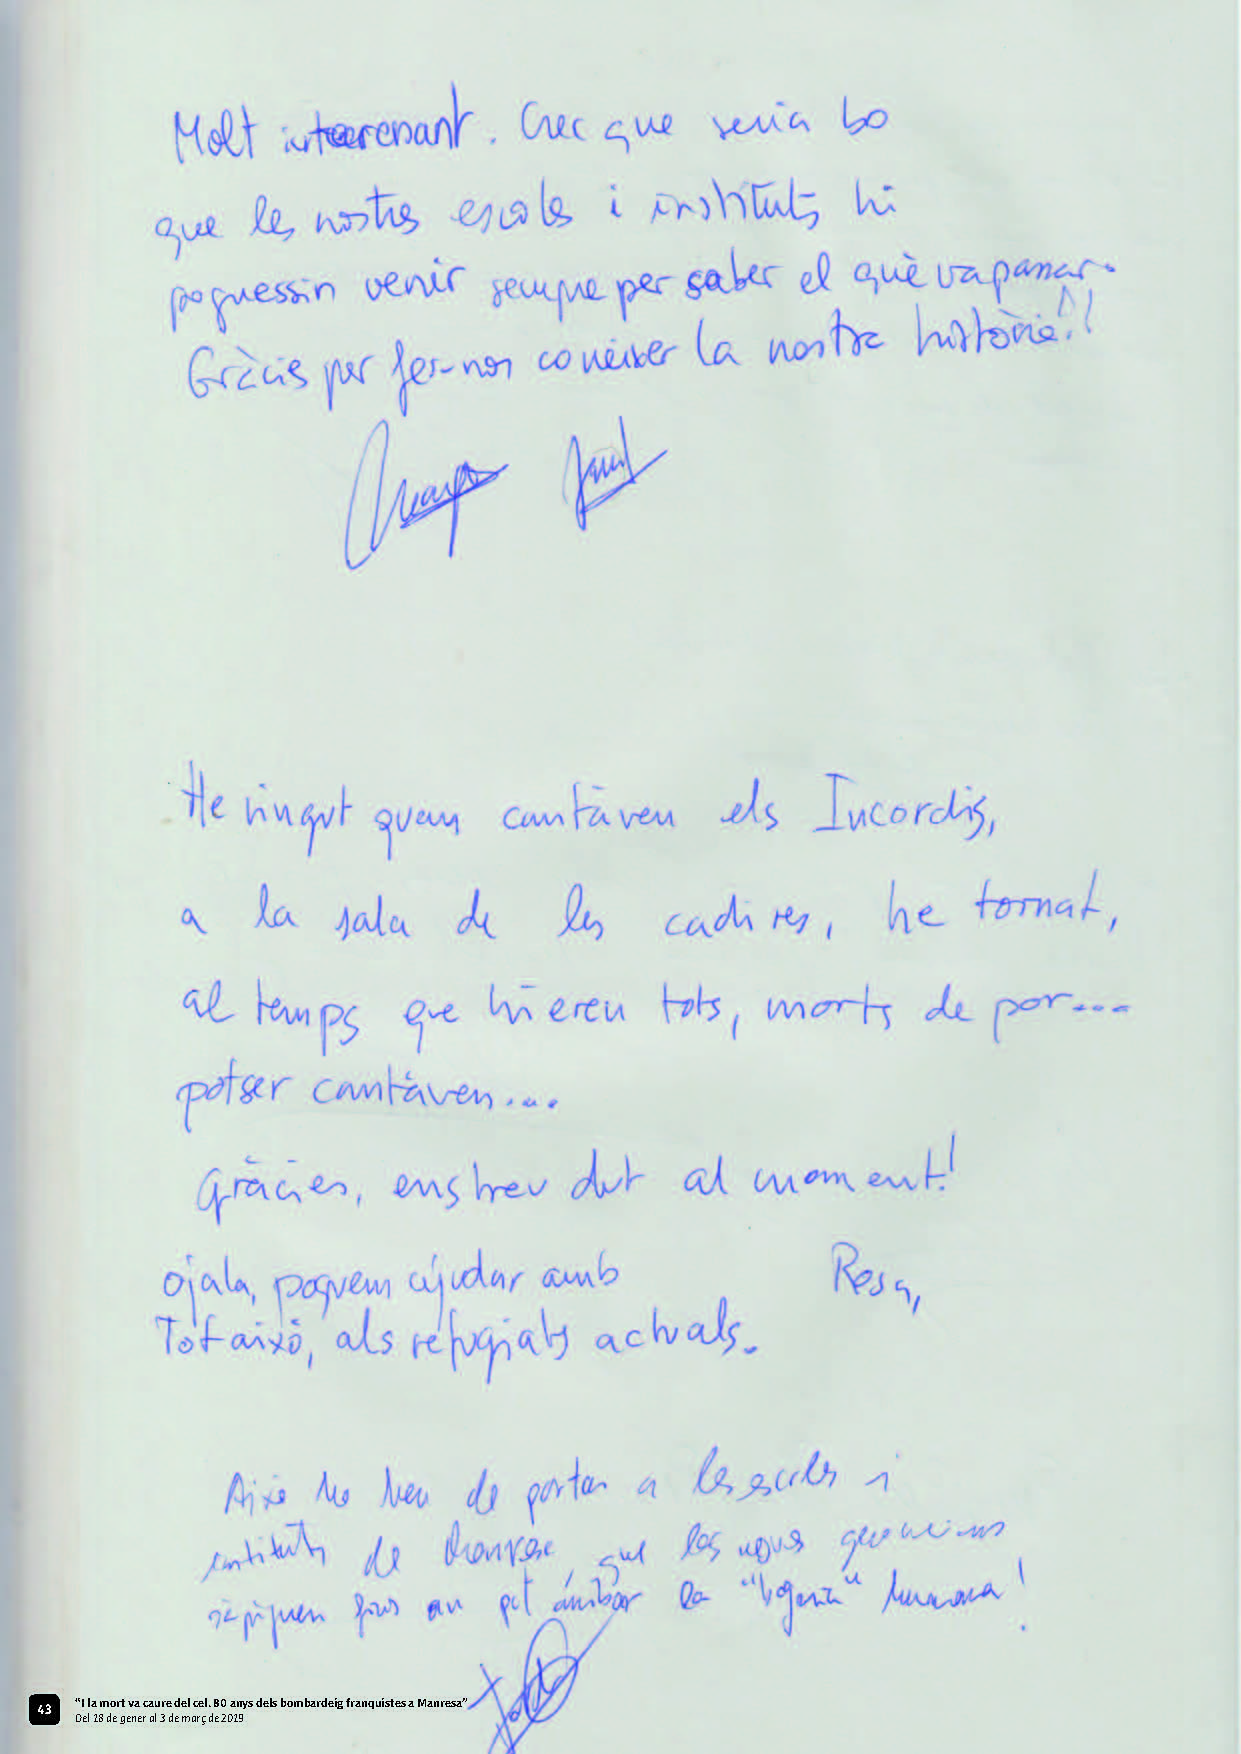 Molt interesant. Crec que seria bo
que les nostres escoles i instituts hi
poguessin venir sempre per saber el què va passar.
Gràcies per fer-nos conèixer la nostra història!!
He vingut quan cantàven els Incordis,
a la sala de les cadires, he tornat,
al temps que hi eren tots, morts de por....
potser cantàven....
Gràcies, ens heu dut al moment!
ojala, poguem ajudar amb
Rosa,
Tot aixó, als refugiats actuals.
Aixo ho heu de portar a les escoles i
instituts de Manresa, que les noves generacions
sàpiguen fins on pot arribar la "bogeria" humana!
43
"I la mort va caure del cel. 80 anys dels bombardeig franquistes a Manresa"
Del 18 de gener al 3 de març de 2019